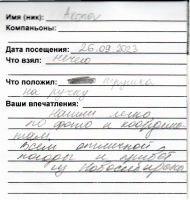 Имя (ник):
Компаньоны:
Дата посещения: 26.09.2023
Что взял: нечего
Что положил: игрушка
на ручку
Ваши впечатления:
нашли легко
по фото и координа-
там.
Всем отличной
погоды и привет
из Новосибирска